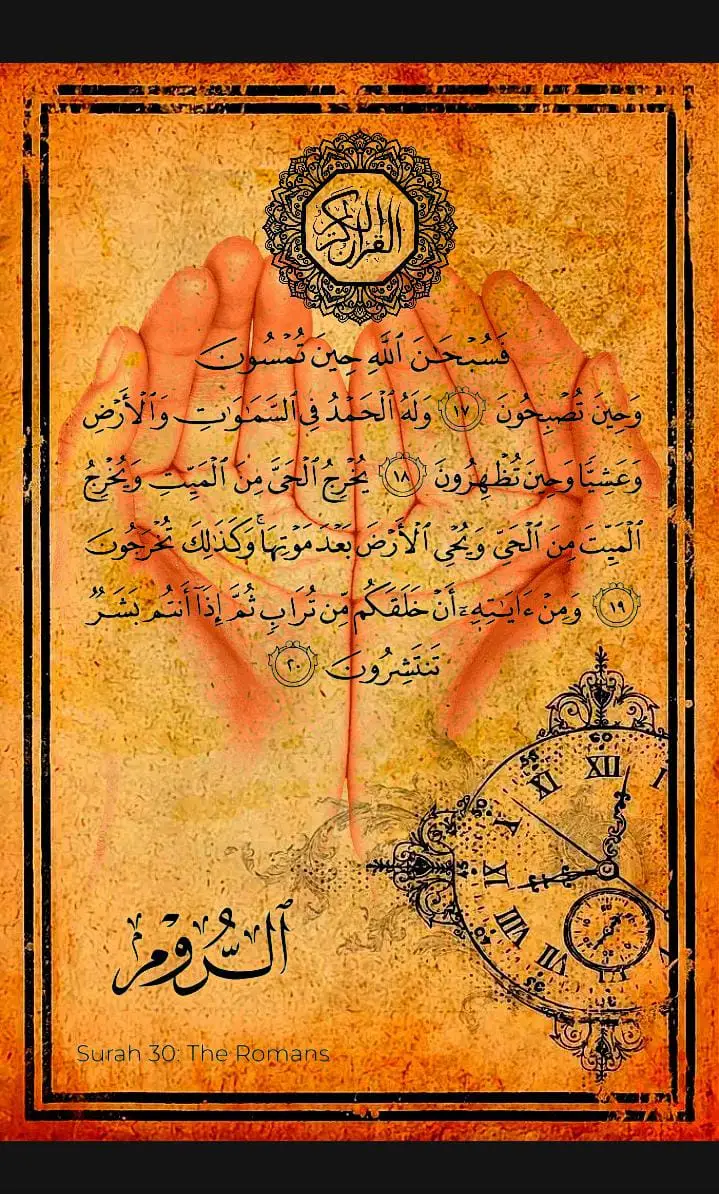 القرآن الكريم
فَسُبْحَـٰنَ ٱللَّهِ حِينَ تُمْسُونَ
وَحِينَ تُصْبِحُونَ ١٧ وَلَهُ ٱلْحَمْدُ فِى ٱلسَّمَـٰوَٰتِ وَٱلْأَرْضِ
وَعَشِيًّا وَحِينَ تُظْهِرُونَ ١٨ يُخْرِجُ ٱلْحَىَّ مِنَ ٱلْمَيِّتِ وَيُخْرِجُ
ٱلْمَيِّتَ مِنَ ٱلْحَىِّ وَيُحْىِ ٱلْأَرْضَ بَعْدَ مَوْتِهَا ۚ وَكَذَٰلِكَ تُخْرَجُونَ
١٩ وَمِنْ ءَايَـٰتِهِۦٓ أَنْ خَلَقَكُم مِّن تُرَابٍ ثُمَّ إِذَآ أَنتُم بَشَرٌ
تَنتَشِرُونَ ٢٠
XII
I
XI
X
IX
VIII
VII
VI
60
55
50
35
ٱلرُّوم
Surah 30: The Romans